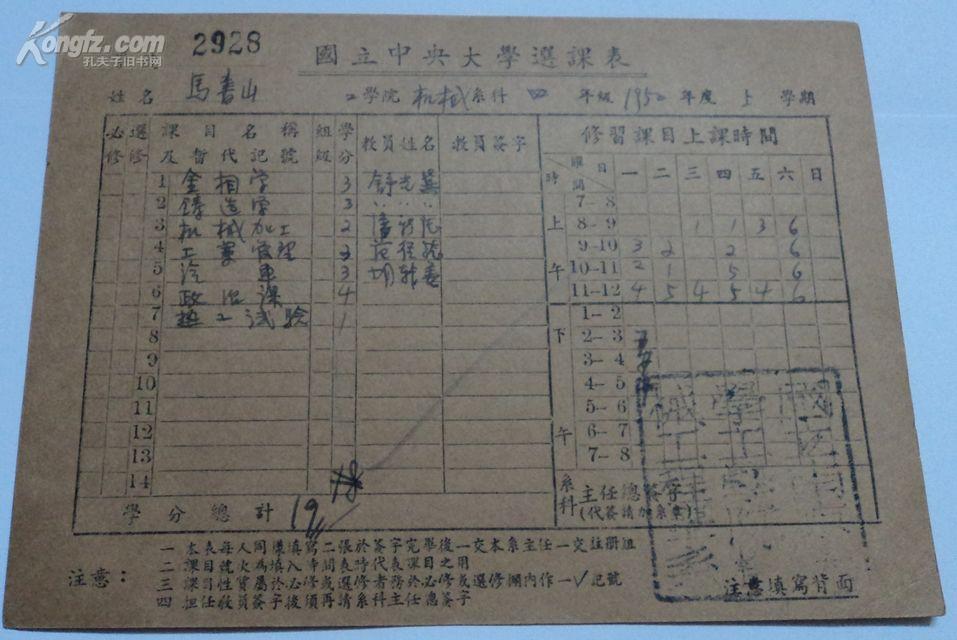 Kongfz.com
孔夫子旧书网
2928
國立中央大學選課表
姓名 馬書山 工學院 机械系科 四 年級 1950 年度 上 學期
必修 選修 課目名稱及暫代記號 組級 學分 教員姓名 教員簽字
1 金相学 3 舒光冀
2 鑄造学 3 〃 〃
3 机械加工 2
4 工業管理 2
5 汽車 3
6 政治課 4
7 热工試驗 1
8
9
10
11
12
13
14
學分總計 19 18
修習課目上課時間
時間 曜日 一 二 三 四 五 六 日
上午
7-8
8-9 1 1 3 6
9-10 3 2 2 6
10-11 2 1 5 6
11-12 4 5 4 5 4 6
下午
1-2
2-3
3-4
4-5
5-6
6-7
7-8
系科主任總簽字
注意：
一 本表每人同樣填寫二張於簽字完畢後一交本系主任一交註冊組
二 課目號火為入時間表時代表課目之用
三 課目性質屬於必修或選修者務於必修或選修欄內作一√記號
四 担任教員簽字後須再請系科主任總簽字
注意填寫背面